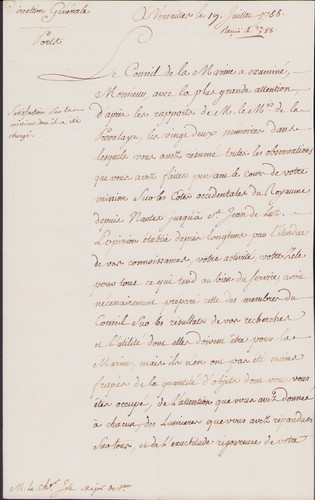 Direction Générale
Ports
Versailles le 19 Juillet 1788.
Satisfaction sur la
mission dont il a été
chargé.
Le Conseil de la Marine a examiné,
Monsieur, avec la plus grande attention,
d'après les rapports de M. le Mis de la
Prevalaye, les vingt deux memoires dans
lesquels vous avez resumé toutes les observations
que vous avez faites pendant le cours de votre
mission sur les Côtes occidentales du Royaume
depuis Nantes jusqu'à St Jean de Luz.
L'opinion établie depuis longtems par l'étendue
de vos connoissances, votre activité, votre zèle
pour tout ce qui tend au bien du service, avoit
necessairement preparé celle des membres du
Conseil sur les resultats de vos recherches
et l'utilité dont elles doivent être pour la
Marine, mais ils n'en ont pas été moins
frapés de la quantité d'objets dont vous vous
êtes occupé, de l'attention que vous avez donnée
à chacun, des Lumieres que vous avez répandues
sur tous, et de l'exactitude rigoureuse de votre
M. le Chr. Major de